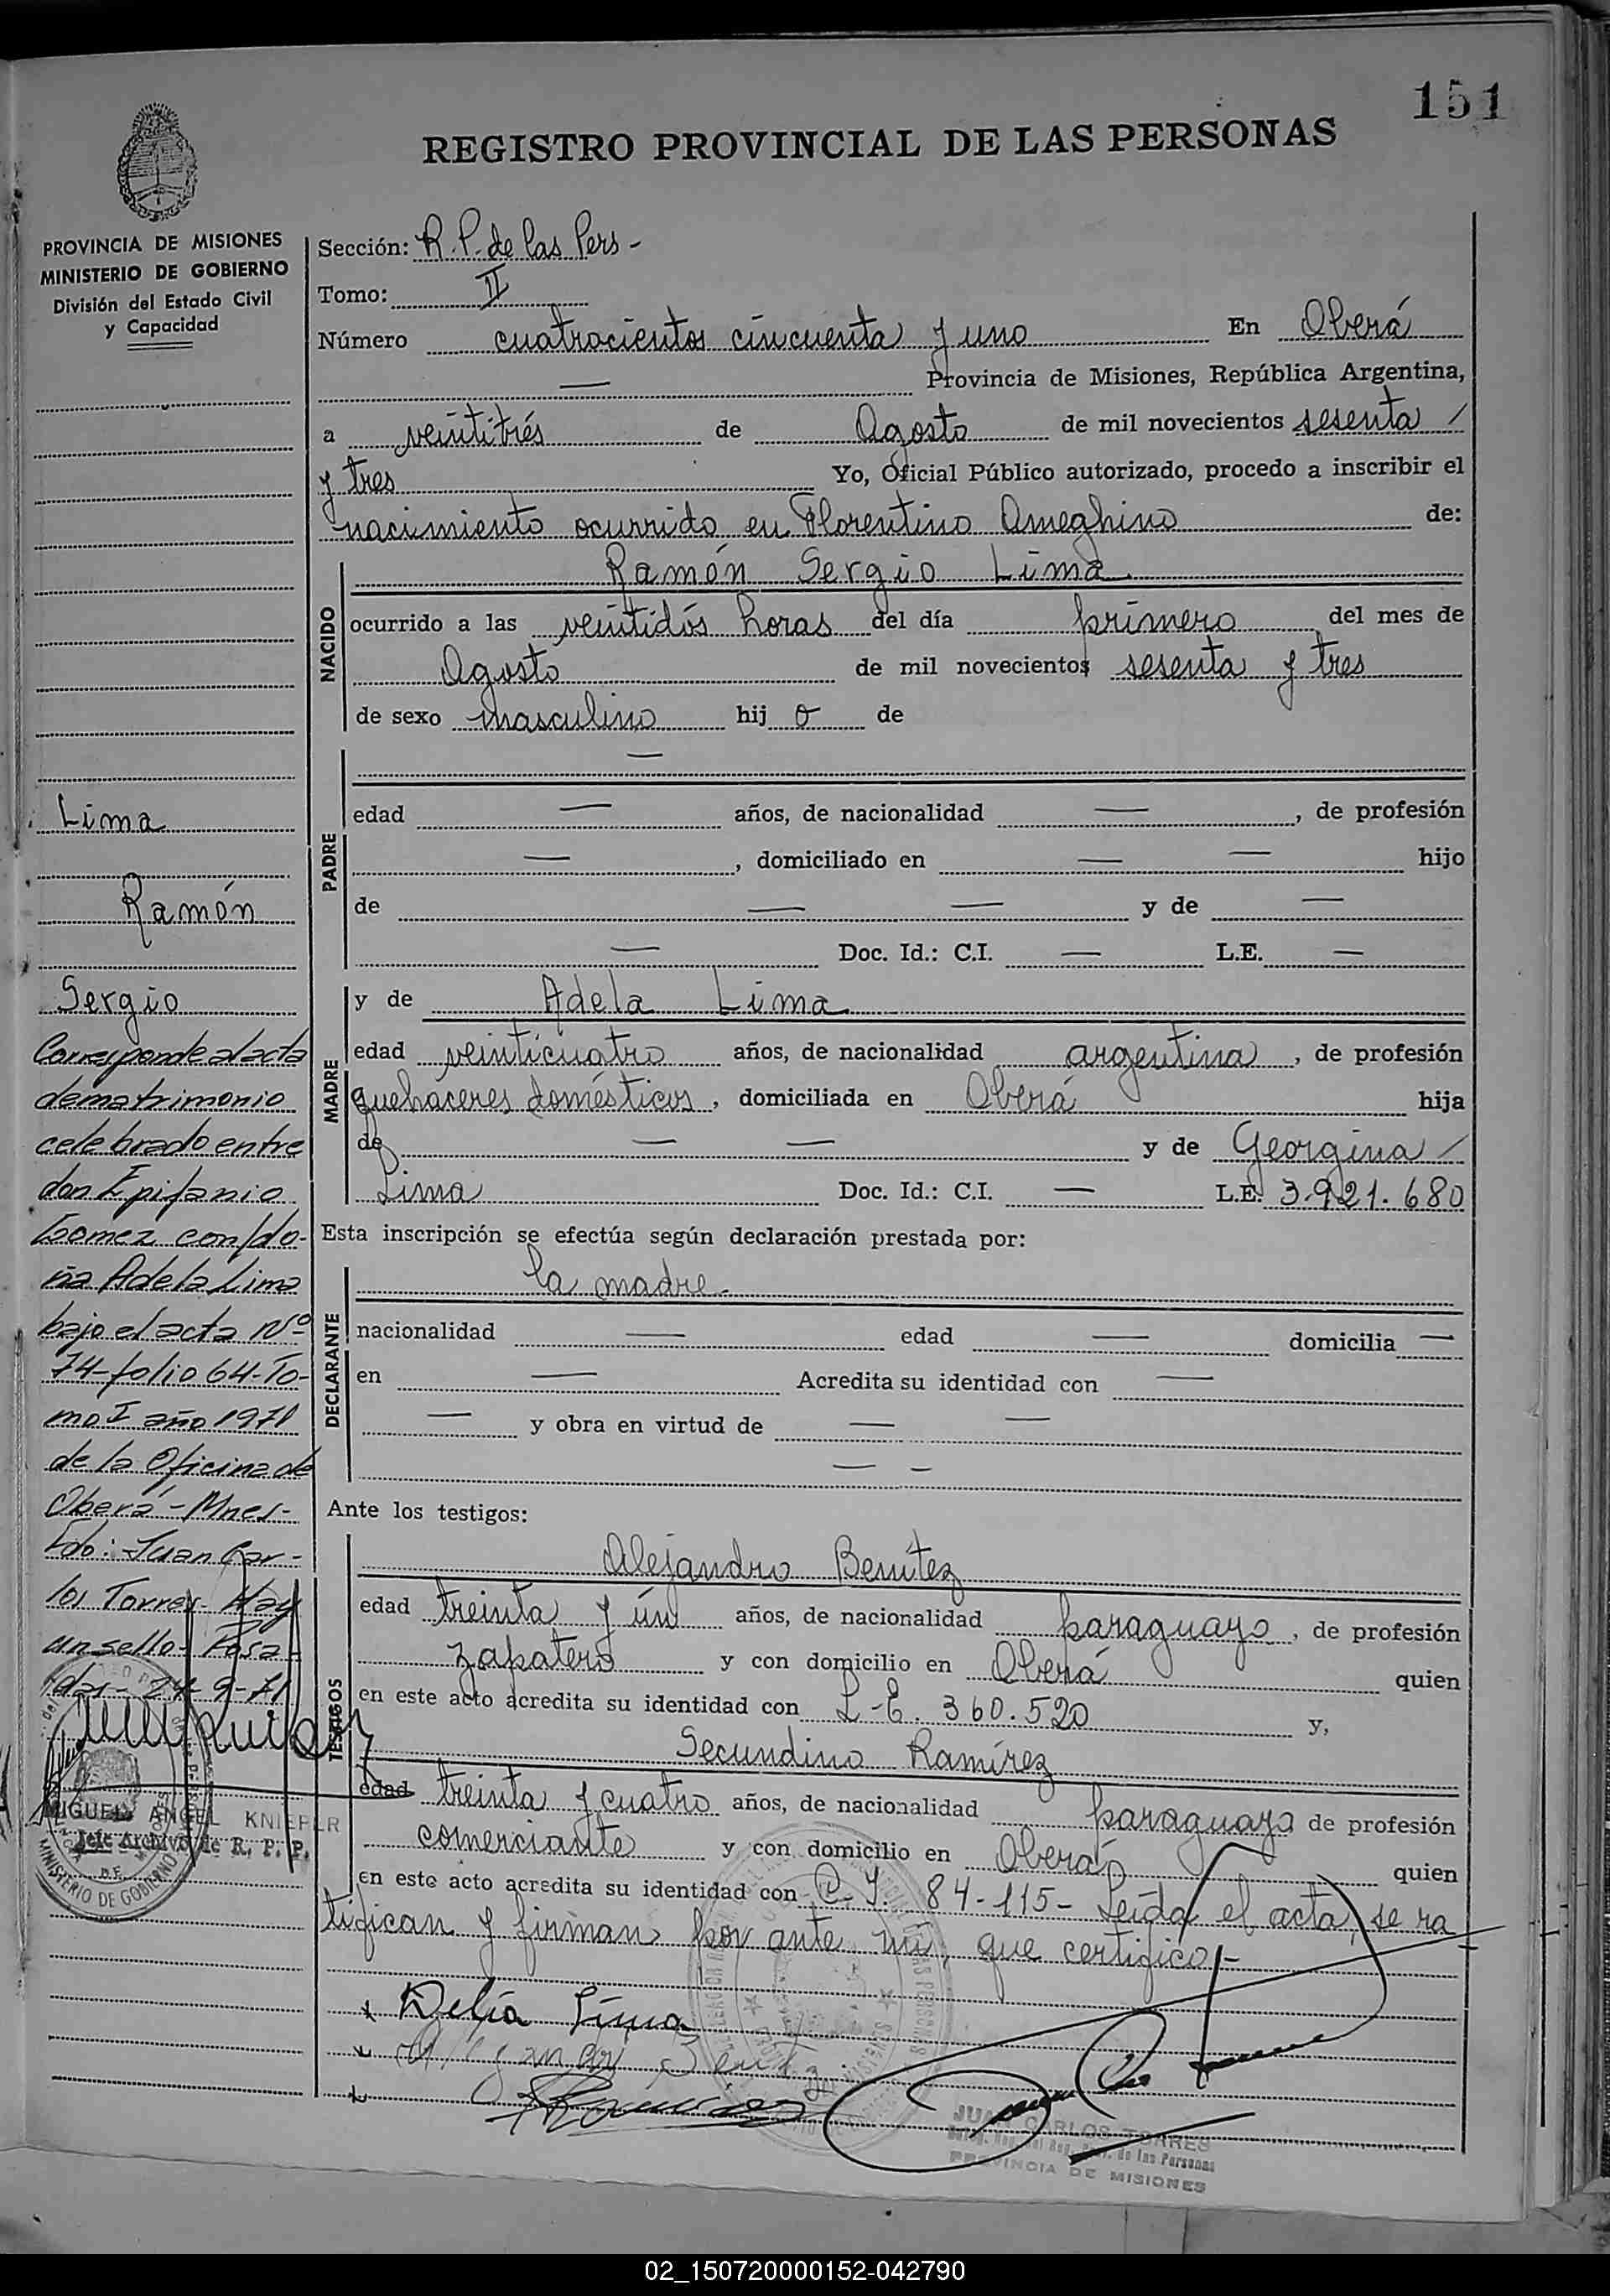 151
REGISTRO PROVINCIAL DE LAS PERSONAS
PROVINCIA DE MISIONES
MINISTERIO DE GOBIERNO
División del Estado Civil
y Capacidad
Lima
Ramón
Sergio
Corresponde al acta
de matrimonio
celebrado entre
don Epifanio
Gomez con/do-
ña Adela Lima
bajo el acta Nº
74-folio 64-To-
mo I año 1971
de la Oficina de
Oberá-Mnes-
Fdo: Juan Car-
los Torres-Hay
un sello-Posa-
das-24-9-71
MIGUEL ANGEL KNIEPER
Jefe Archivo de R. P. P.
MINISTERIO DE GOBIERNO
Sección: R.P. de las Pers-
Tomo: II
Número cuatrocientos cincuenta y uno En Oberá
— Provincia de Misiones, República Argentina,
a veintitrés de Agosto de mil novecientos sesenta /
y tres Yo, Oficial Público autorizado, procedo a inscribir el
nacimiento ocurrido en Florentino Ameghino de:
NACIDO
Ramón Sergio Lima
ocurrido a las veintidós horas del día primero del mes de
Agosto de mil novecientos sesenta y tres
de sexo masculino hij o de
PADRE
—
edad — años, de nacionalidad —, de profesión
—, domiciliado en — — hijo
de — — y de —
— Doc. Id.: C.I. — L.E. —
MADRE
y de Adela Lima
edad veinticuatro años, de nacionalidad argentina, de profesión
quehaceres domésticos, domiciliada en Oberá hija
de — — y de Georgina /
Lima Doc. Id.: C.I. — L.E. 3.921.680
Esta inscripción se efectúa según declaración prestada por:
DECLARANTE
la madre
nacionalidad — edad — domicilia —
en — Acredita su identidad con —
— y obra en virtud de — —
— —
Ante los testigos:
TESTIGOS
Alejandro Benítez
edad treinta y ún años, de nacionalidad paraguayo, de profesión
zapatero y con domicilio en Oberá quien
en este acto acredita su identidad con L-E. 360.520 y,
Secundino Ramírez
edad treinta y cuatro años, de nacionalidad paraguayo de profesión
comerciante y con domicilio en Oberá quien
en este acto acredita su identidad con C.I. 84-115- Leída el acta, se ra
tifican y firman por ante mí, que certifico.-
x Delia Lima
JUAN CARLOS TORRES
de las Personas
PROVINCIA DE MISIONES
02_150720000152-042790